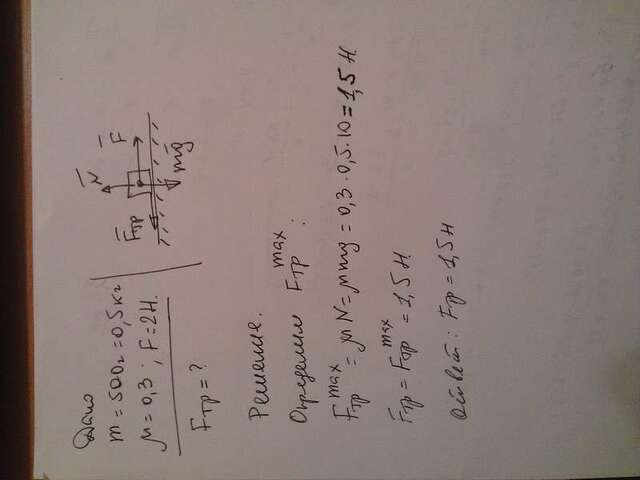 Дано
m = 500г = 0,5 кг
μ = 0,3 ; F = 2Н.
Fтр = ?
N̅
F̅
F̅тр
mg̅
Решение.
Определим Fтр max :
Fтр max = μN = μmg = 0,3 · 0,5 · 10 = 1,5 Н
Fтр = Fтр max = 1,5 Н
Ответ : Fтр = 1,5 Н